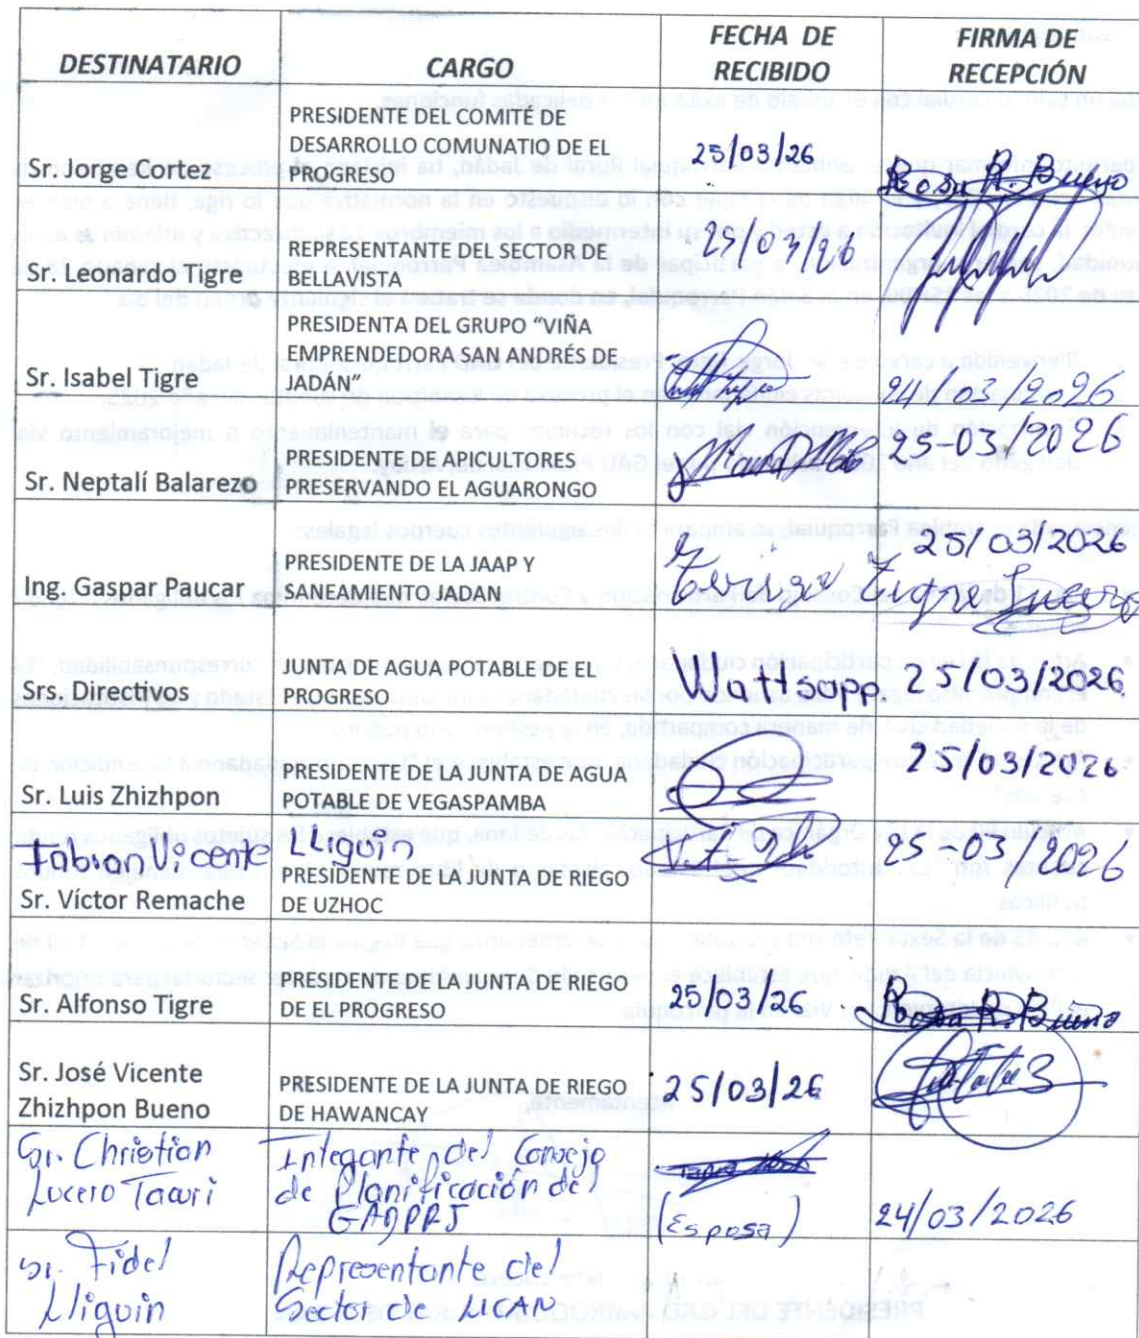 DESTINATARIO
CARGO
FECHA DE
RECIBIDO
FIRMA DE
RECEPCIÓN
Sr. Jorge Cortez
PRESIDENTE DEL COMITÉ DE
DESARROLLO COMUNATIO DE EL
PROGRESO
25/03/26
Rosa R. Bueno
Sr. Leonardo Tigre
REPRESENTANTE DEL SECTOR DE
BELLAVISTA
25/03/26
Sr. Isabel Tigre
PRESIDENTA DEL GRUPO "VIÑA
EMPRENDEDORA SAN ANDRÉS DE
JADÁN"
24/03/2026
Sr. Neptalí Balarezo
PRESIDENTE DE APICULTORES
PRESERVANDO EL AGUARONGO
25-03/2026
Ing. Gaspar Paucar
PRESIDENTE DE LA JAAP Y
SANEAMIENTO JADAN
25/03/2026
Srs. Directivos
JUNTA DE AGUA POTABLE DE EL
PROGRESO
Wattsapp
25/03/2026
Sr. Luis Zhizhpon
PRESIDENTE DE LA JUNTA DE AGUA
POTABLE DE VEGASPAMBA
25/03/2026
Fabian Vicente Lliguin
Sr. Víctor Remache
PRESIDENTE DE LA JUNTA DE RIEGO
DE UZHOC
25-03/2026
Sr. Alfonso Tigre
PRESIDENTE DE LA JUNTA DE RIEGO
DE EL PROGRESO
25/03/26
Rosa R. Bueno
Sr. José Vicente
Zhizhpon Bueno
PRESIDENTE DE LA JUNTA DE RIEGO
DE HAWANCAY
25/03/26
Sr. Christian
Lucero Tacuri
Integante del Consejo
de Planificación del
GADPRJ
(Esposa)
24/03/2026
Sr. Fidel
Lliguin
Representante del
Sector de